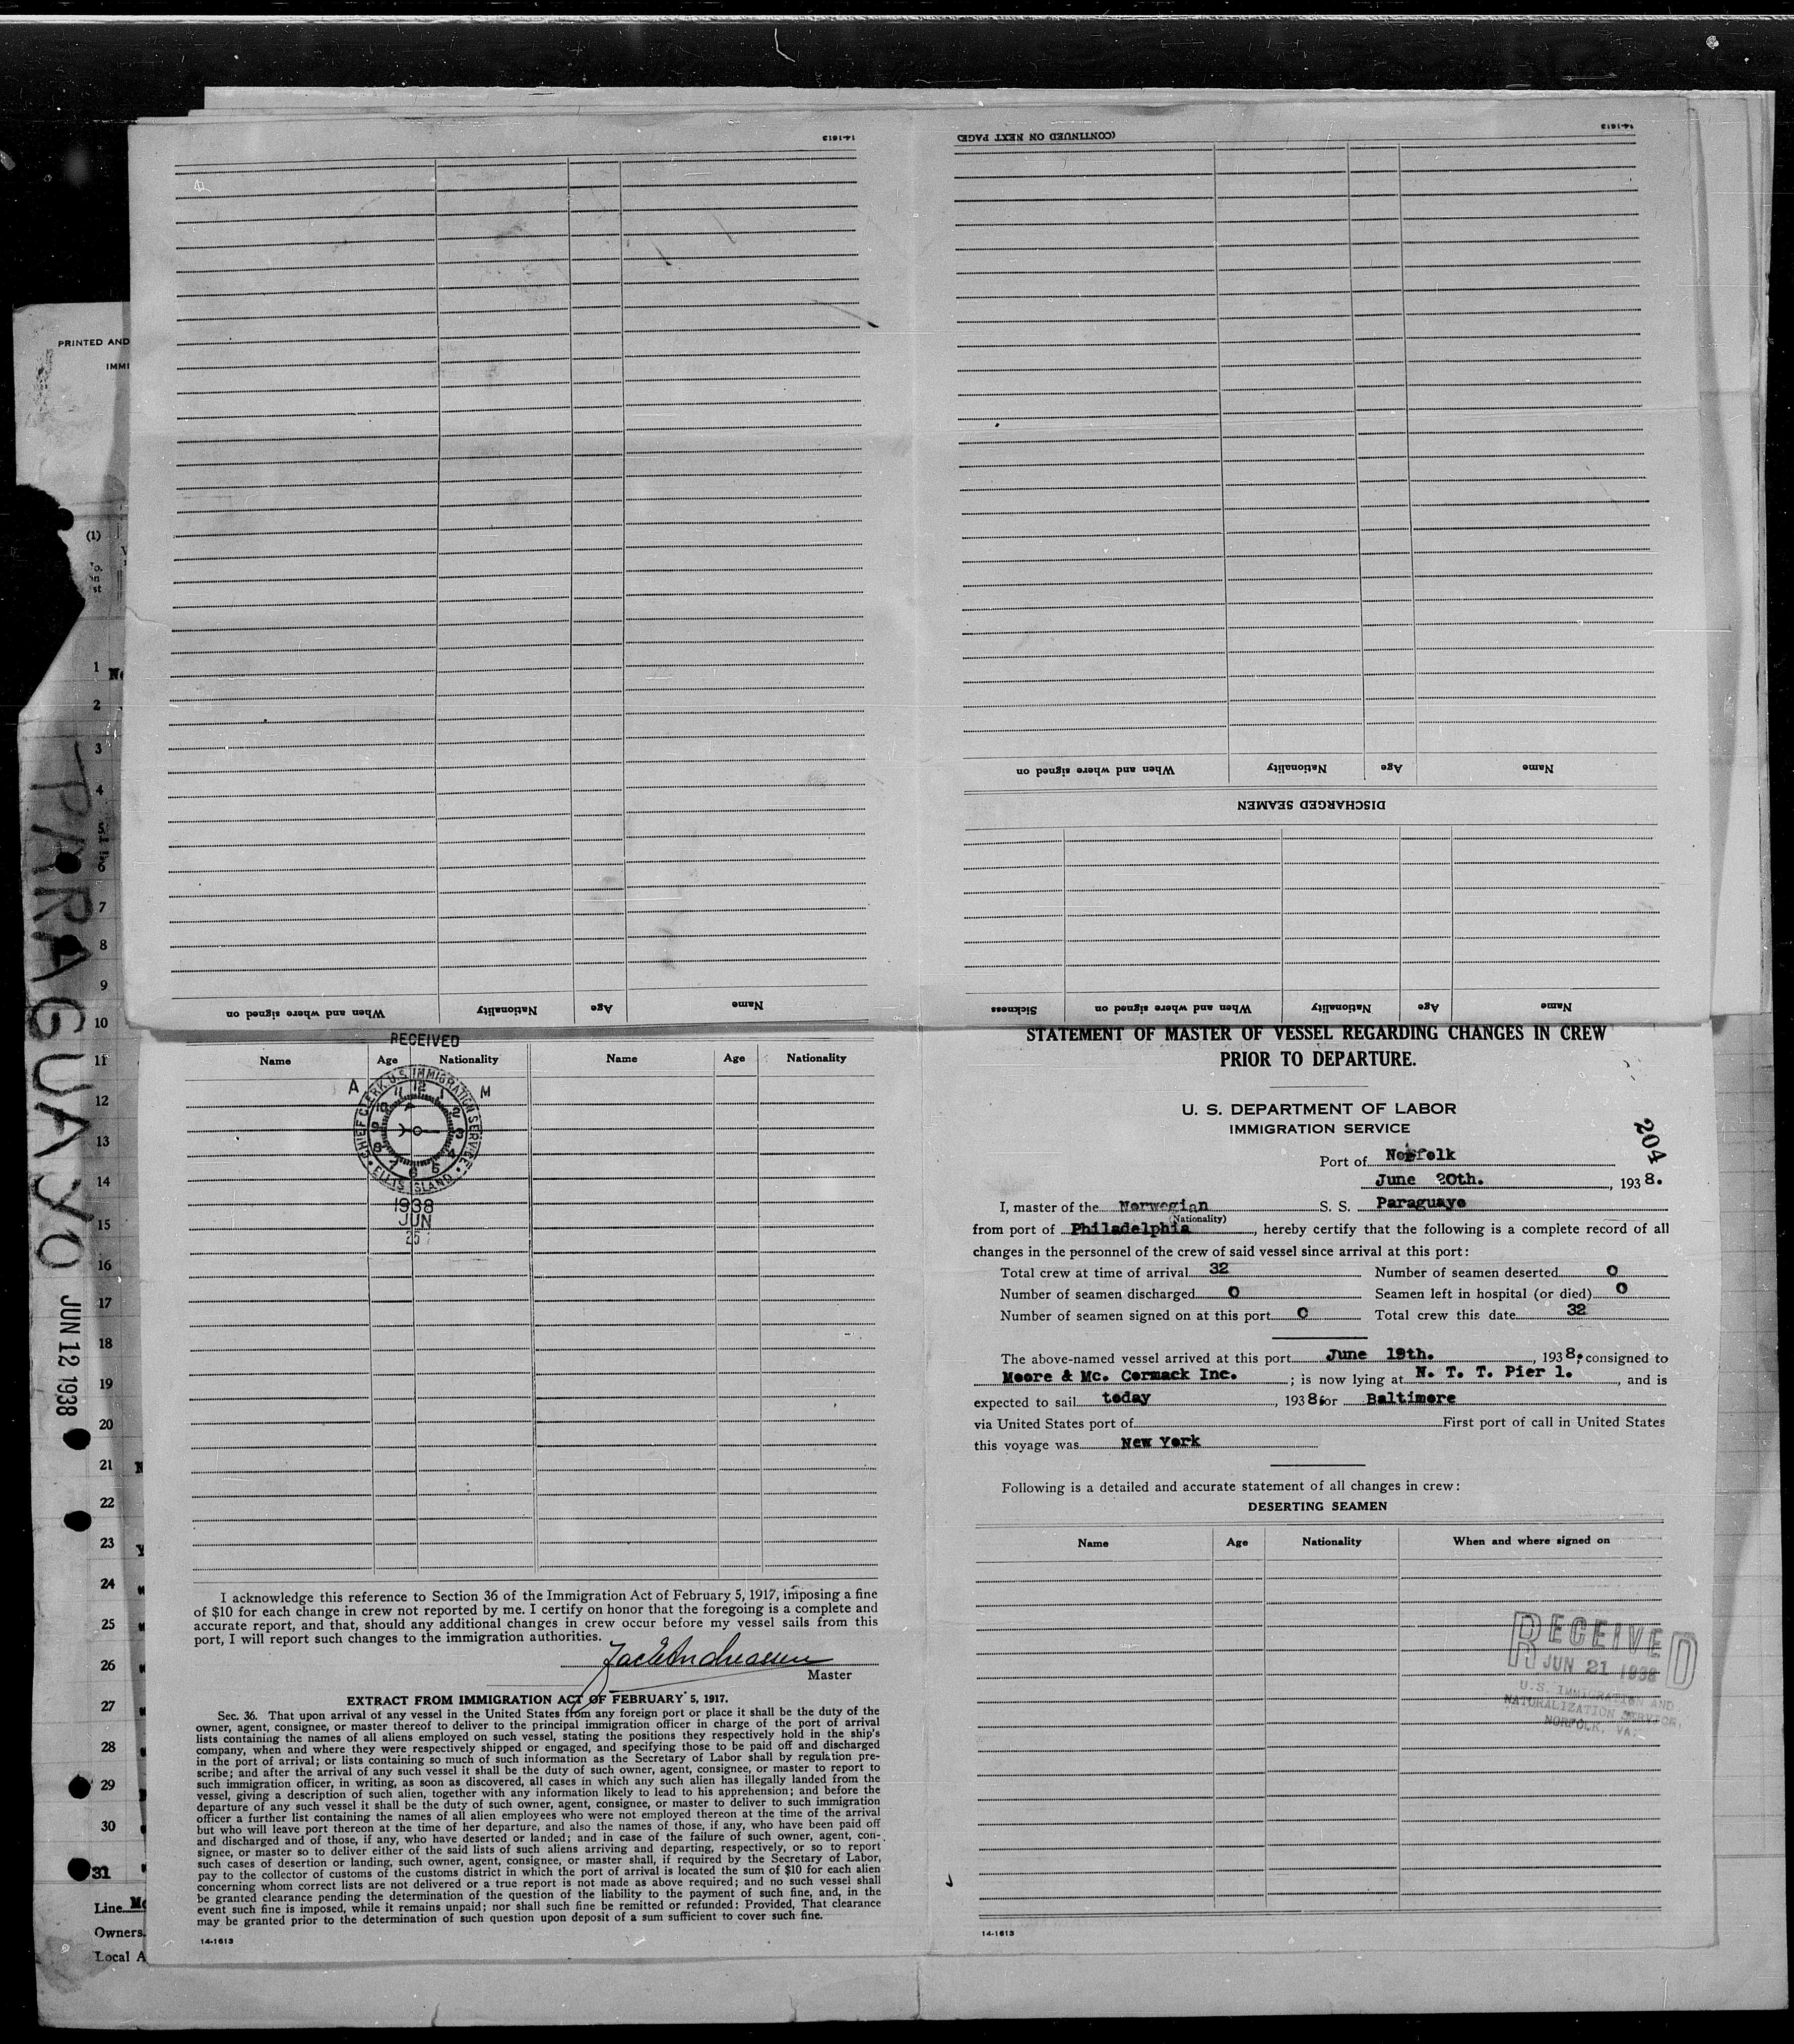 14-1613
(CONTINUED ON NEXT PAGE)
14-1613
PRINTED AND
IMMI
(1)
When and where signed on Nationality Age Name
DISCHARGED SEAMEN
Sickness When and where signed on Nationality Age Name
When and where signed on Nationality Age Name
1
2
3
4
5
6
7
8
9
10
11
12
13
14
15
16
17
18
19
20
21
22
23
24
25
26
27
28
29
30
31
Line
Owners
Local A
PARAGUAYO
JUN 12 1938
RECEIVED
Name Age Nationality Name Age Nationality
A M
CHIEF CLERK U.S. IMMIGRATION SERVICE
ELLIS ISLAND
12 1 2 3 4 5 6 7 8 9 10 11
1938
JUN
25
I acknowledge this reference to Section 36 of the Immigration Act of February 5, 1917, imposing a fine
of $10 for each change in crew not reported by me. I certify on honor that the foregoing is a complete and
accurate report, and that, should any additional changes in crew occur before my vessel sails from this
port, I will report such changes to the immigration authorities.
Master
EXTRACT FROM IMMIGRATION ACT OF FEBRUARY 5, 1917.
Sec. 36. That upon arrival of any vessel in the United States from any foreign port or place it shall be the duty of the
owner, agent, consignee, or master thereof to deliver to the principal immigration officer in charge of the port of arrival
lists containing the names of all aliens employed on such vessel, stating the positions they respectively hold in the ship's
company, when and where they were respectively shipped or engaged, and specifying those to be paid off and discharged
in the port of arrival; or lists containing so much of such information as the Secretary of Labor shall by regulation pre-
scribe; and after the arrival of any such vessel it shall be the duty of such owner, agent, consignee, or master to report to
such immigration officer, in writing, as soon as discovered, all cases in which any such alien has illegally landed from the
vessel, giving a description of such alien, together with any information likely to lead to his apprehension; and before the
departure of any such vessel it shall be the duty of such owner, agent, consignee, or master to deliver to such immigration
officer a further list containing the names of all alien employees who were not employed thereon at the time of the arrival
but who will leave port thereon at the time of her departure, and also the names of those, if any, who have been paid off
and discharged and of those, if any, who have deserted or landed; and in case of the failure of such owner, agent, con-
signee, or master so to deliver either of the said lists of such aliens arriving and departing, respectively, or so to report
such cases of desertion or landing, such owner, agent, consignee, or master shall, if required by the Secretary of Labor,
pay to the collector of customs of the customs district in which the port of arrival is located the sum of $10 for each alien
concerning whom correct lists are not delivered or a true report is not made as above required; and no such vessel shall
be granted clearance pending the determination of the question of the liability to the payment of such fine, and, in the
event such fine is imposed, while it remains unpaid; nor shall such fine be remitted or refunded: Provided, That clearance
may be granted prior to the determination of such question upon deposit of a sum sufficient to cover such fine.
14-1613
STATEMENT OF MASTER OF VESSEL REGARDING CHANGES IN CREW
PRIOR TO DEPARTURE.
U. S. DEPARTMENT OF LABOR
IMMIGRATION SERVICE
204
Port of Norfolk
June 20th. , 1938.
I, master of the Norwegian S. S. Paraguayo
(Nationality)
from port of Philadelphia , hereby certify that the following is a complete record of all
changes in the personnel of the crew of said vessel since arrival at this port:
Total crew at time of arrival 32 Number of seamen deserted 0
Number of seamen discharged 0 Seamen left in hospital (or died) 0
Number of seamen signed on at this port 0 Total crew this date 32
The above-named vessel arrived at this port June 19th. , 1938., consigned to
Moore & Mc. Cormack Inc. ; is now lying at N. T. T. Pier 1. , and is
expected to sail today , 1938 for Baltimore
via United States port of First port of call in United States
this voyage was New York
Following is a detailed and accurate statement of all changes in crew:
DESERTING SEAMEN
Name Age Nationality When and where signed on
RECEIVED
JUN 21 1938
U.S. IMMIGRATION AND
NATURALIZATION SERVICE,
NORFOLK, VA.
14-1613